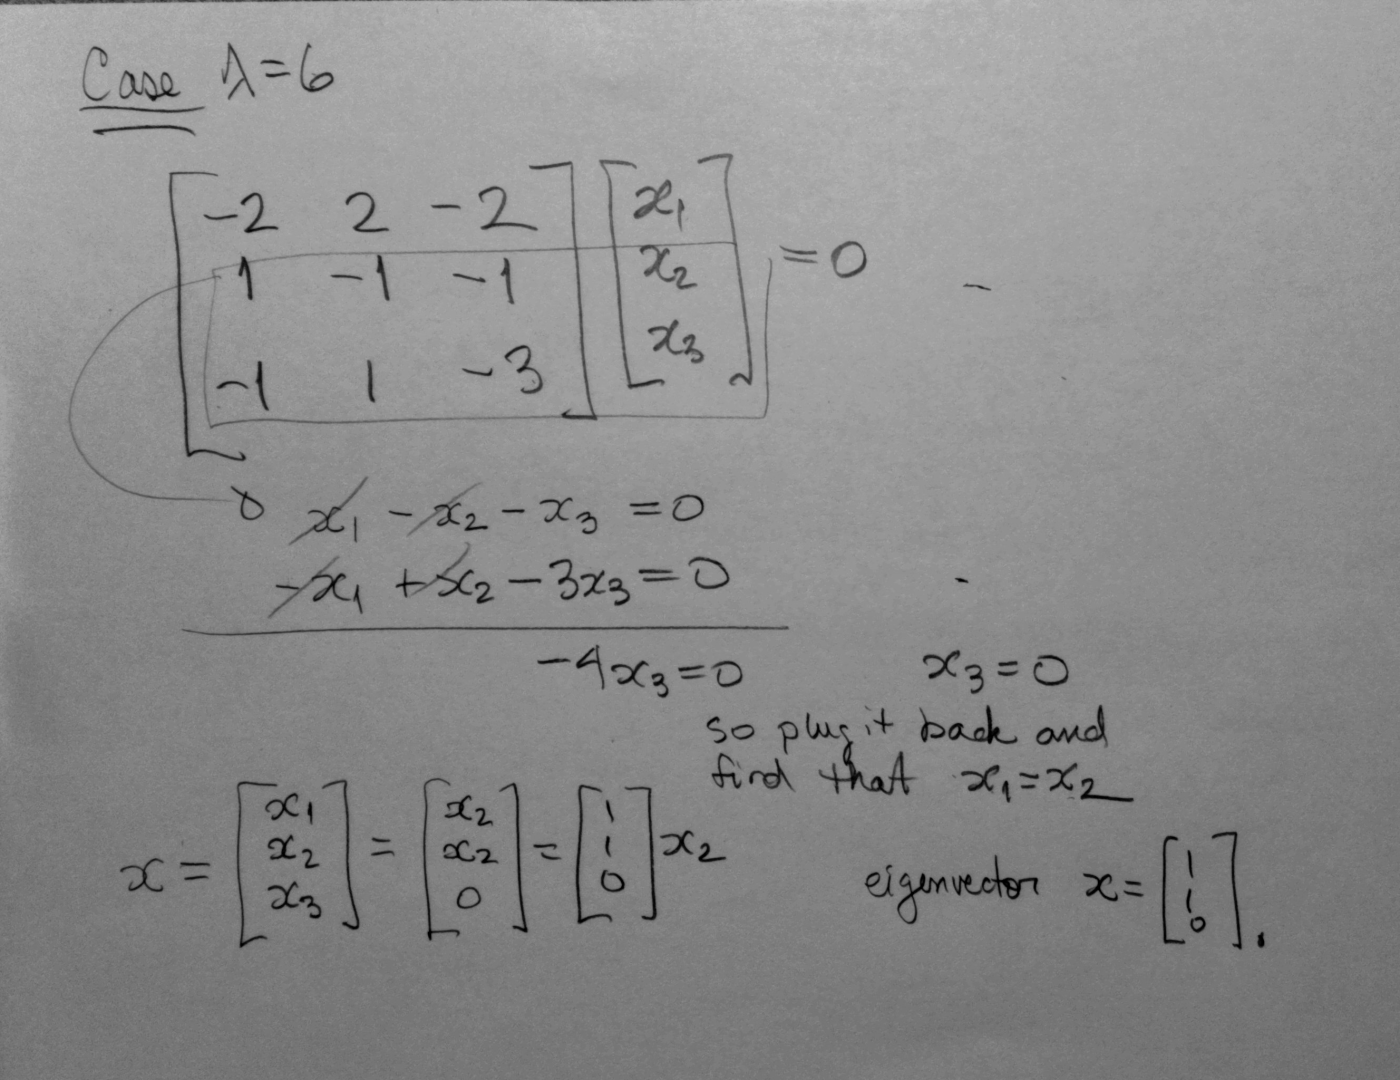 Case λ=6
[-2 2 -2] [x₁]
[1 -1 -1] [x₂] =0
[-1 1 -3] [x₃]
x₁ - x₂ - x₃ =0
-x₁ +x₂ - 3x₃ =0
-4x₃=0 x₃=0
so plug it back and
find that x₁=x₂
x = [x₁ x₂ x₃] = [x₂ x₂ 0] = [1 1 0] x₂
eigenvector x= [1 1 0].